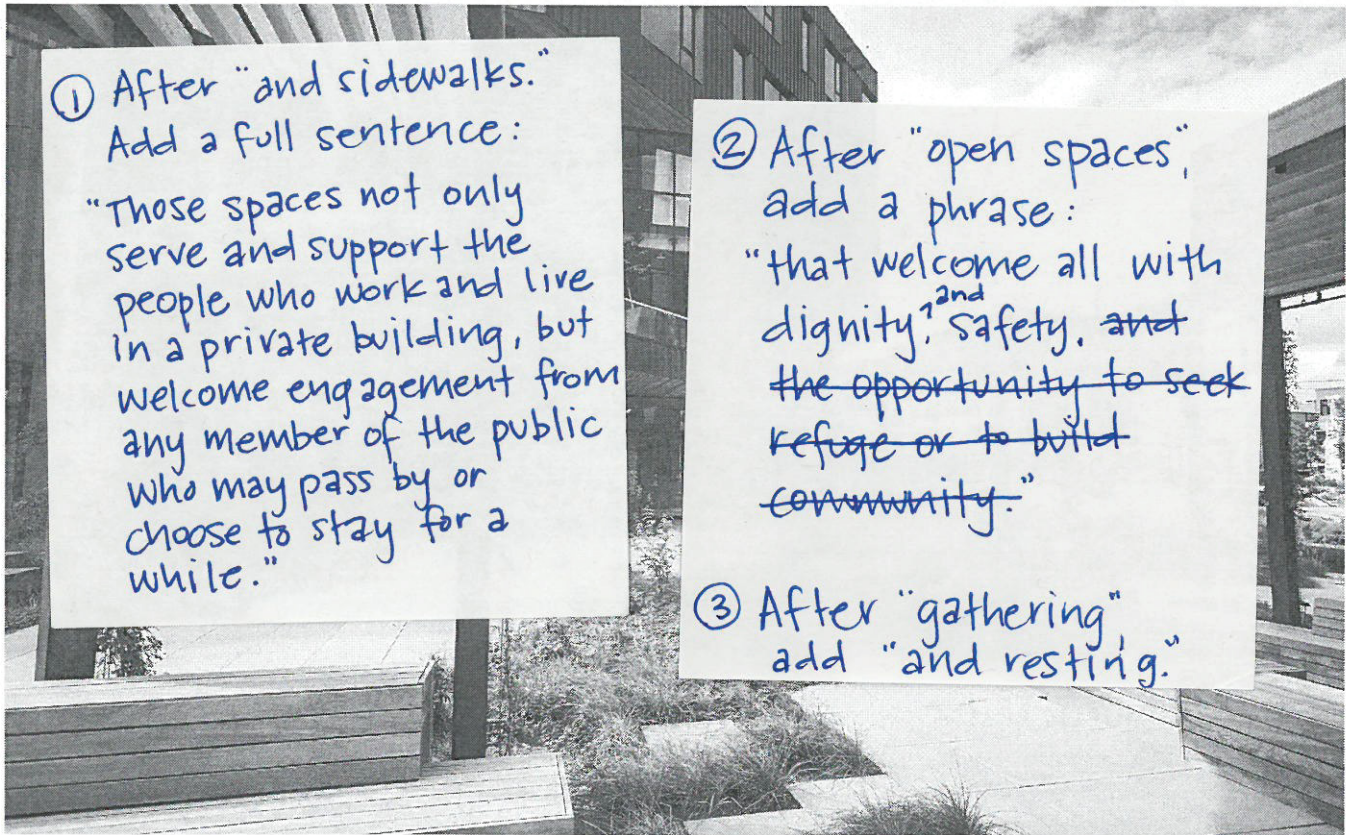 ① After "and sidewalks."
Add a full sentence:
"Those spaces not only
serve and support the
people who work and live
in a private building, but
welcome engagement from
any member of the public
who may pass by or
choose to stay for a
while."
② After "open spaces",
add a phrase:
"that welcome all with
dignity, and safety. and
the opportunity to seek
refuge or to build
community."
③ After "gathering",
add "and resting."